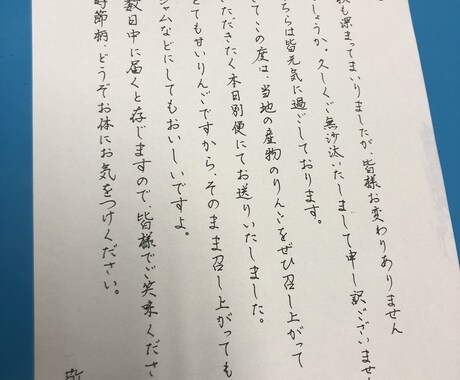 秋も深まってまいりましたが、皆様お変わりありません
しょうか。久しくご無沙汰いたしまして申し訳ございませ
ちらは皆元気に過ごしております。
さてこの度は、当地の産物のりんごをぜひ召し上がって
いただきたく本日別便にてお送りいたしました。
とても甘いりんごですから、そのまま召し上がっても
ジャムなどにしてもおいしいですよ。
数日中に届くと存じますので、皆様でご笑味くださ
時節柄、どうぞお体にお気をつけください。